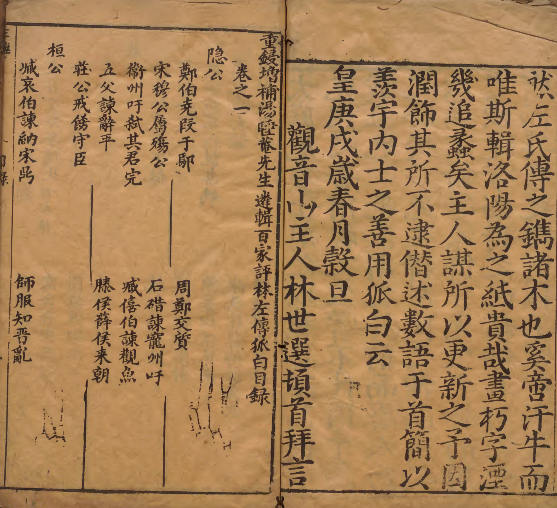 然左氏傳之鐫諸木也奚啻汗牛而
唯斯輯洛陽為之紙貴哉晝朽字湮
幾追蠡矣主人謀所以更新之予因
潤飾其所不逮僭述數語于首簡以
羨宇內士之善用狐白云
皇庚戌歲春月穀旦
觀音山主人林世選頓首拜言
重鋟增補湯睡菴先生遴輯百家評林左傳狐白目錄
卷之一
隱公
鄭伯克段于鄢 周鄭交質
宋穆公屬殤公 石碏諫寵州吁
衛州吁弒其君完 臧僖伯諫觀魚
五父諫辭平 滕侯薛侯來朝
莊公戒飭守臣
桓公
臧哀伯諫納宋鼎 師服知晉亂